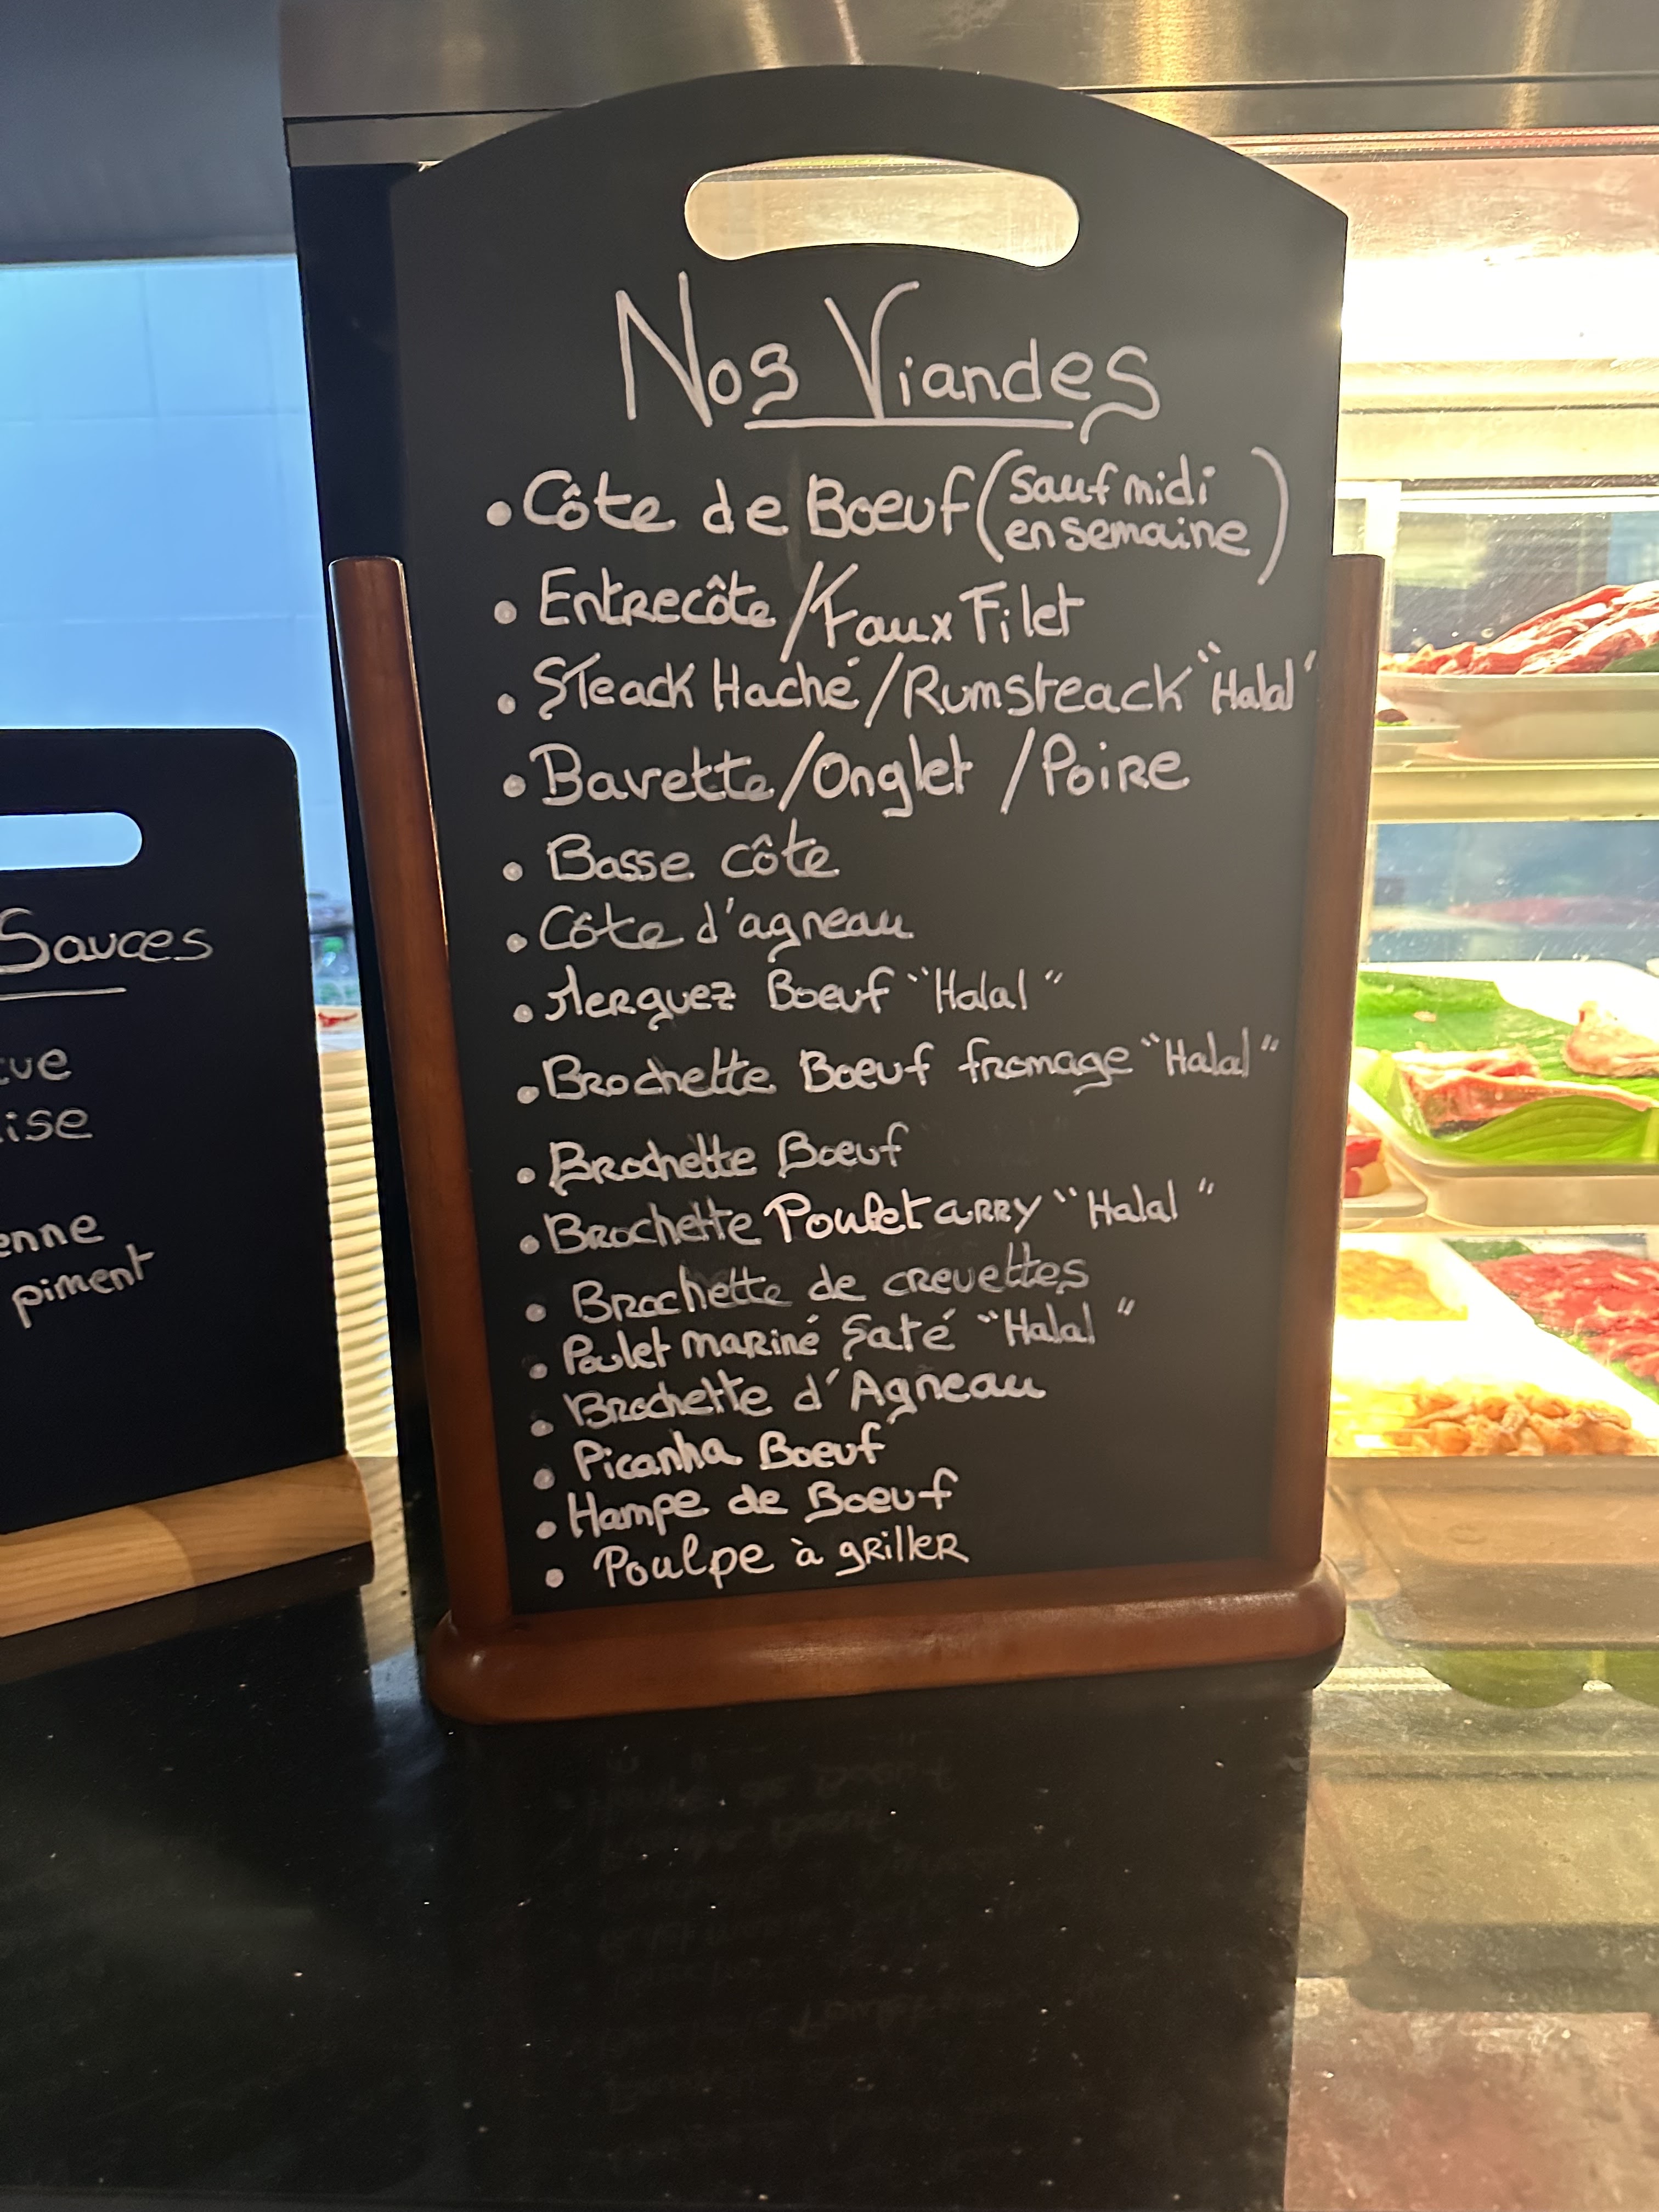 Nos Viandes
• Côte de Boeuf (Sauf midi
en semaine)
• Entrecôte / Faux Filet
• STeack Haché / Rumsteack "Halal"
• Bavette / Onglet / Poire
• Basse côte
• Côte d'agneau
• Merguez Boeuf "Halal"
• Brochette Boeuf fromage "Halal"
• Brochette Boeuf
• Brochette Poulet carry "Halal"
• Brochette de crevettes
• Poulet mariné saté "Halal"
• Brochette d'Agneau
• Picanha Boeuf
• Hampe de Boeuf
• Poulpe à griller
Sauces
piment